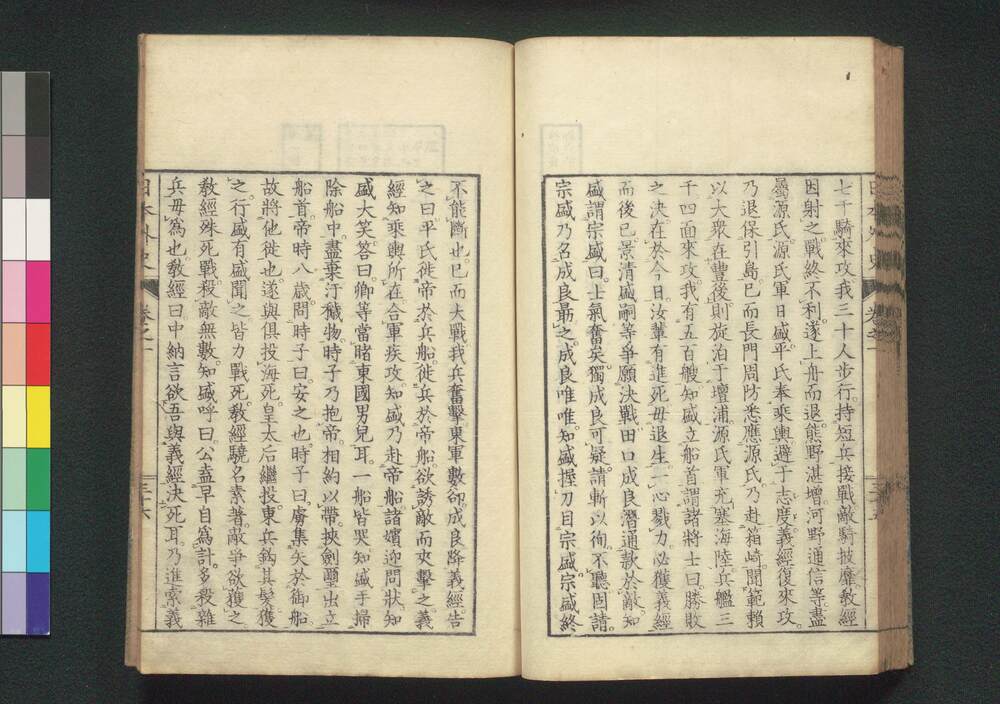 七千騎來攻我三十人步行。持短兵接戰敵騎披靡。敎經
因射之戰終不利遂上舟而退。熊野湛增河野通信等盡
屬源氏。源氏軍日盛。平氏奉乘輿避于志度。義經復來攻。
乃退保引島。已而長門周防悉應源氏。乃赴箱崎。聞範賴
以大衆在豐後。則旋泊于壇浦。源氏軍充塞海陸。兵艦三
千四面來攻。我有五百艘。知盛立船首謂諸將士曰。勝敗
之決在於今日。汝輩有進死毋退生。一心戮力必獲義經
而後已。景清盛嗣等爭願決戰。田口成良潛通款於敵。知
盛謂宗盛曰。士氣奮矣。獨成良可疑。請斬以徇。不聽。固請。
宗盛乃名成良勗之。成良唯唯。知盛握刀目宗盛。宗盛終
不能斷也。已而大戰。我兵奮擊。東軍數卻。成良降義經。告
之曰。平氏徙帝於兵船。徙兵於帝船。欲誘敵而夾擊之。義
經知乘輿所在。合軍疾攻。知盛乃赴帝船。諸嬪迎問狀。知
盛大笑答曰。卿等當睹東國男兒耳。一船皆哭。知盛手掃
除船中。盡棄汙穢物。時子乃抱帝。相約以帶。挾劍璽出立
船首。帝時八歲。問時子曰。安之也。時子曰。虜集矢於御船。
故將他徙也。遂與俱投海死。皇太后繼投。東兵鈎其髮獲
之。行盛有盛聞之。皆力戰死。敎經驍名素著。敵爭欲獲之
敎經殊死戰。殺敵無數。知盛呼曰。公盍早自爲計。多殺雜
兵毋爲也。敎經曰。中納言欲吾與義經決死耳。乃進索義
日本外史
卷之一
二十六